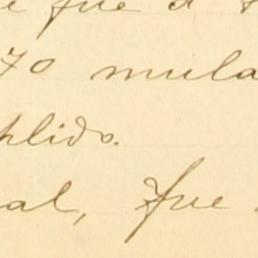 fue a
70 mula
plido.
al, fue